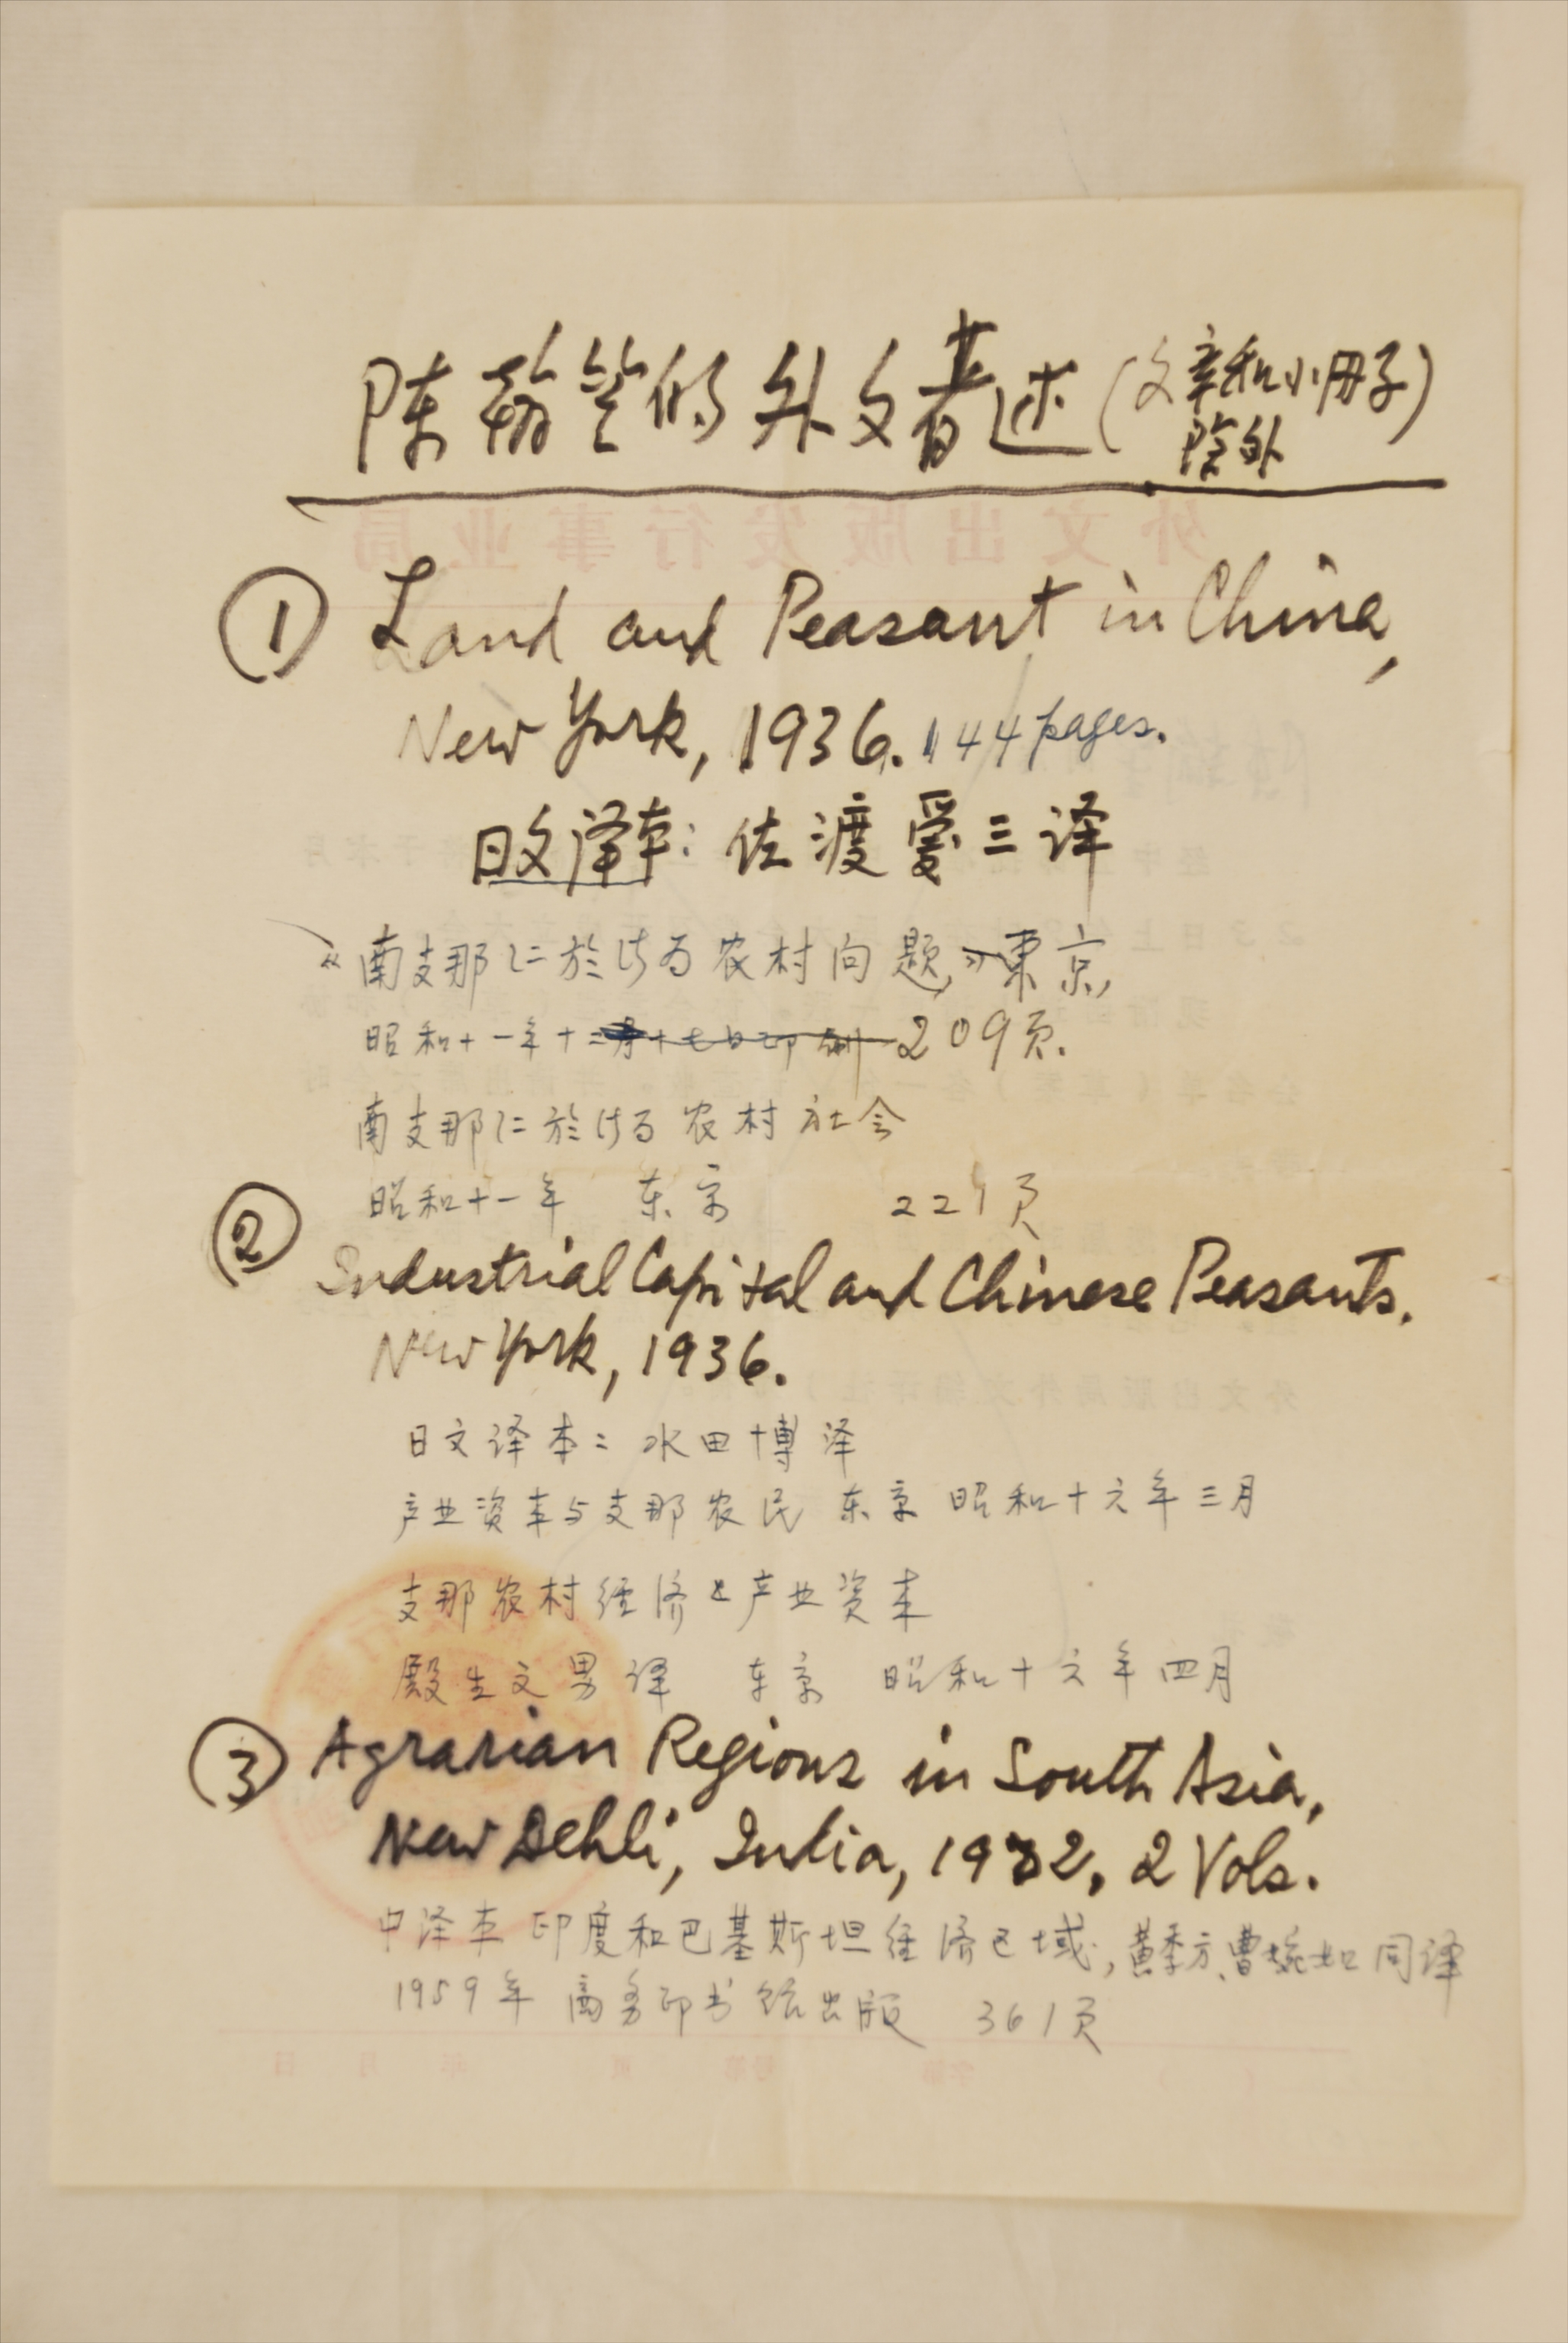 陈翰笙的外文著述(文章和小册子
除外)
① Land and Peasant in China,
New York, 1936. 144 pages.
日文译本: 佐渡爱三译
《南支那に於ける农村问题》東京,
昭和十一年十二月十七日印刷 209页.
南支那に於ける农村社会
昭和十一年 东京 229页
② Industrial Capital and Chinese Peasants.
New York, 1936.
日文译本: 水田博译
产业资本与支那农民 东京 昭和十六年三月
支那农村经济と产业资本
殿生文男译 东京 昭和十六年四月
③ Agrarian Regions in South Asia,
New Dehli, India, 1982, 2 Vols.
中译本 印度和巴基斯坦经济区域, 黄季方、曹婉如同译
1959年 商务印书馆出版 361页
外文出版发行事业局